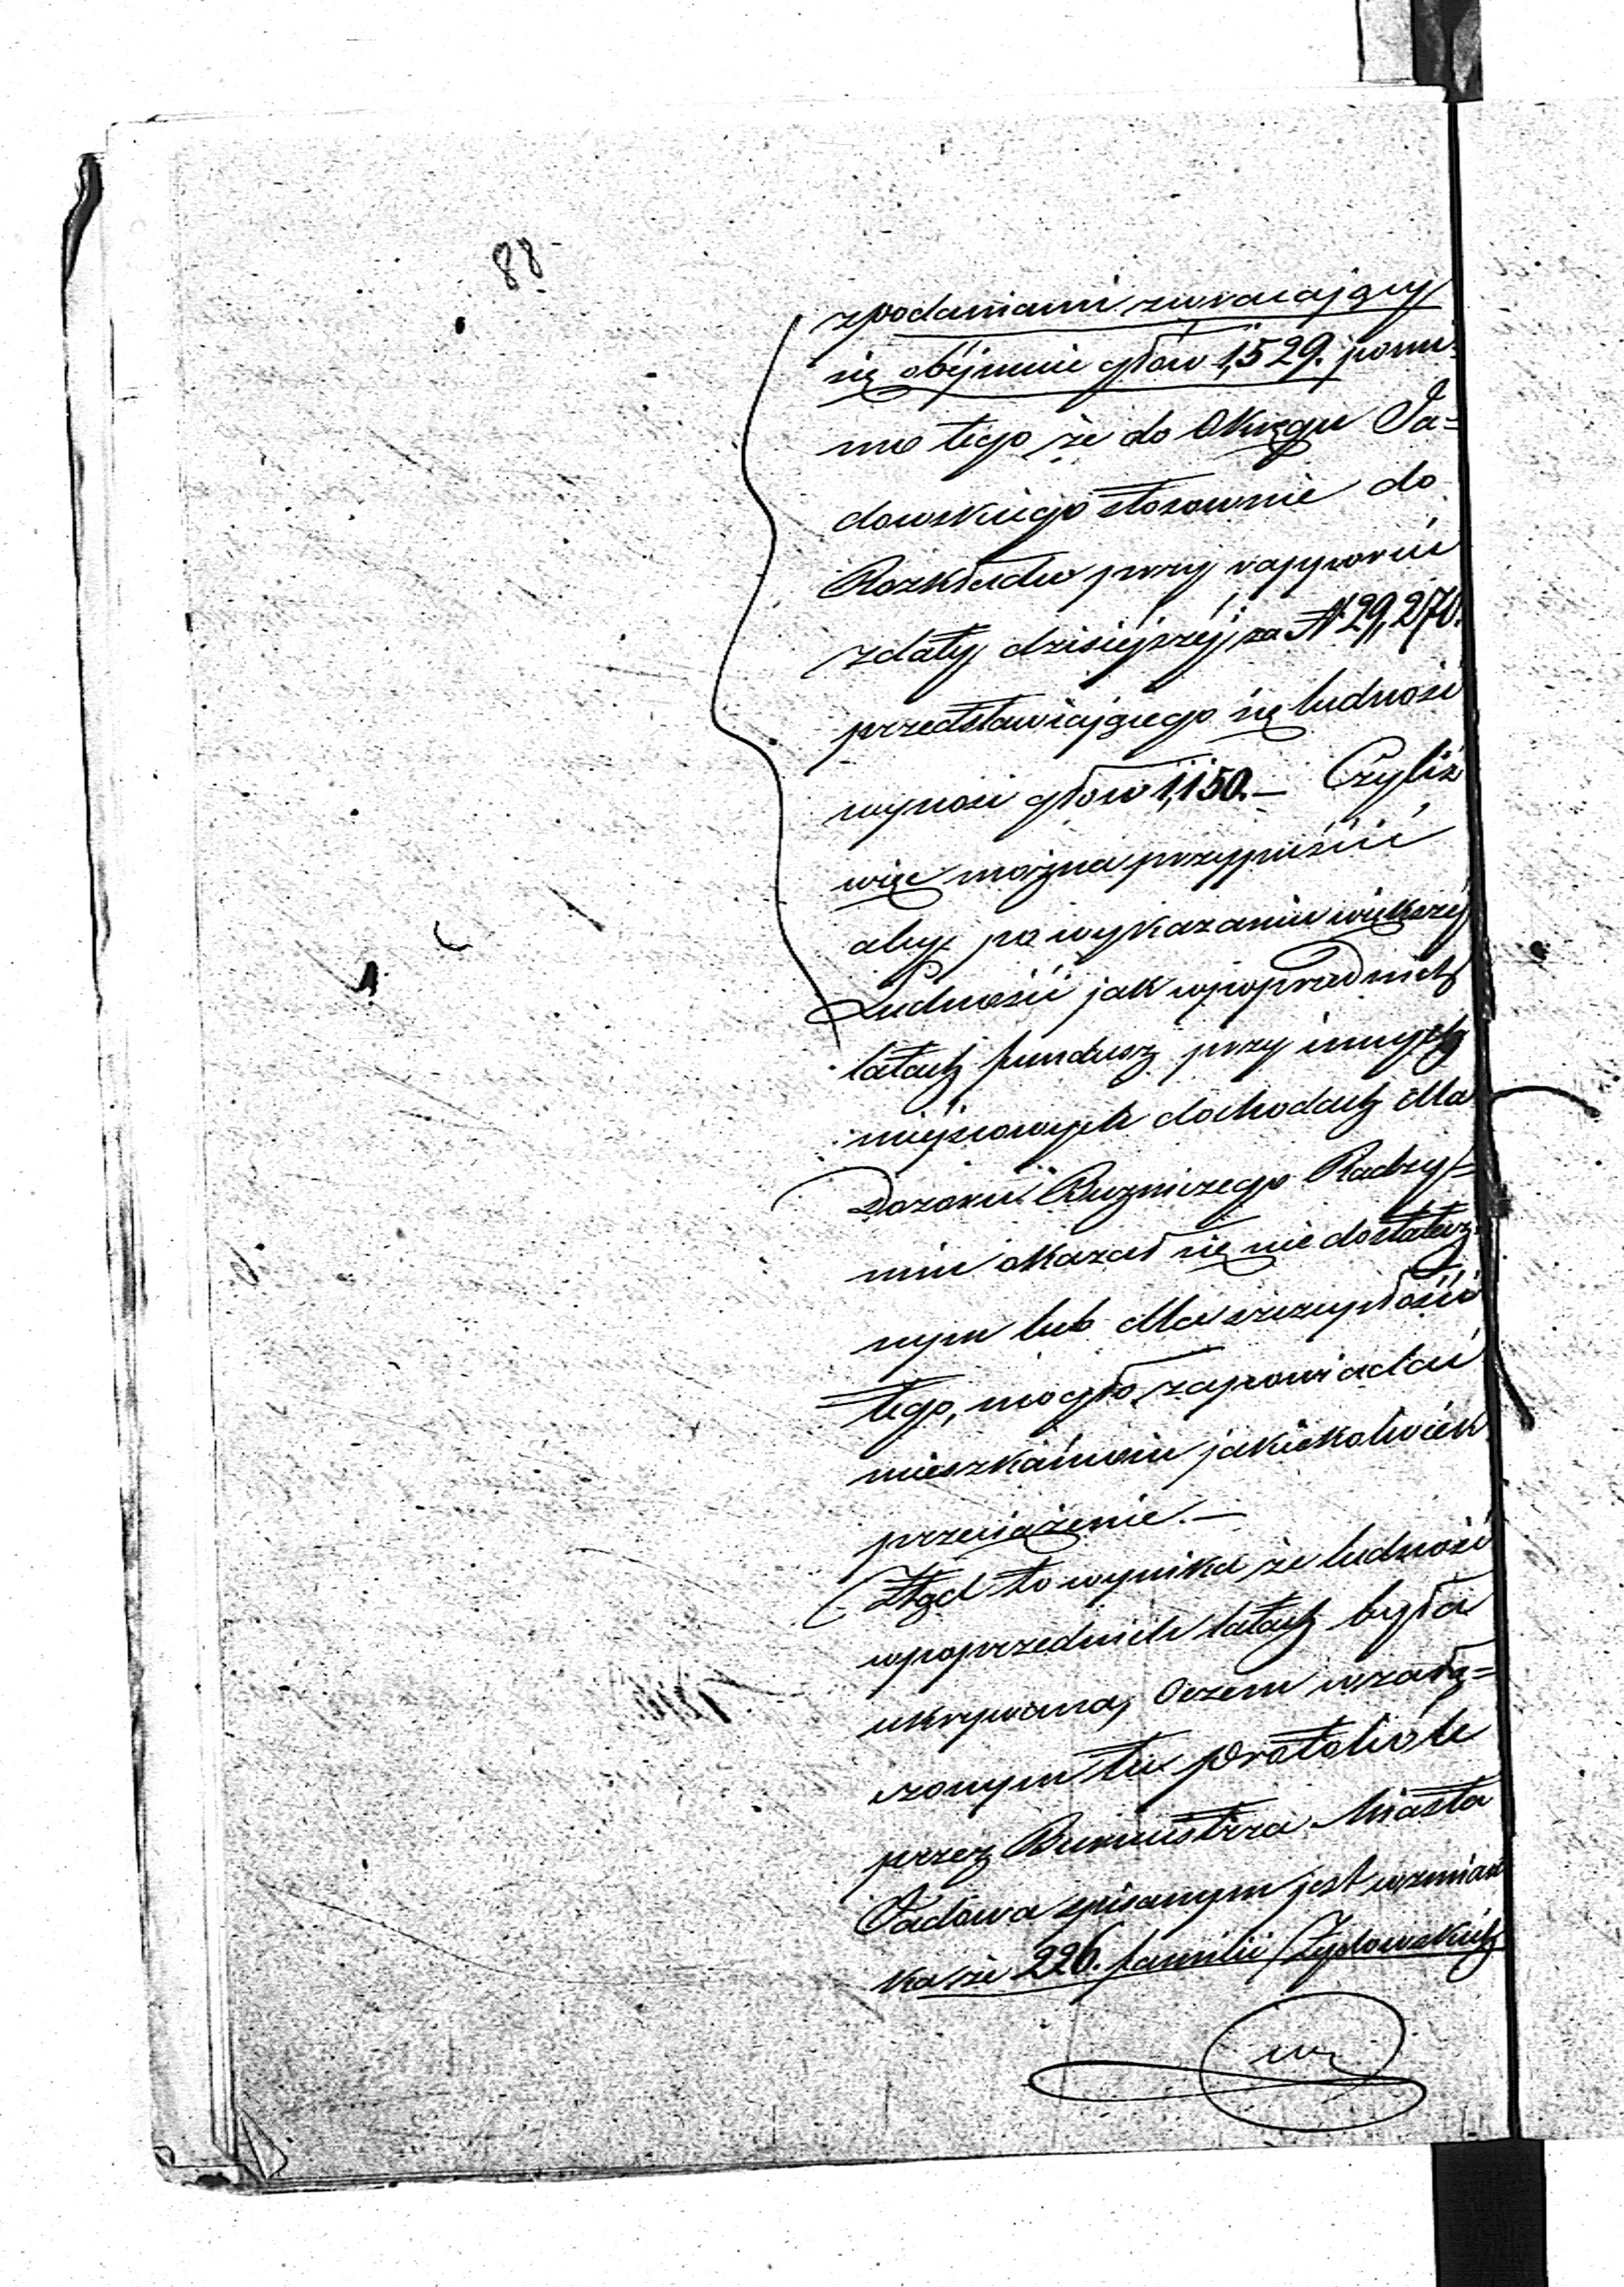 88
z podaniami zwracający
się objmuie głów 1,529. pomi-
mo tego że do Okręgu Ja=
dowskiego stosownie do
Rozkładu przy rapporcie
z daty dzisiejszéj za N 29,270.
przedstawiającego się ludność
wynosi głów 1,150.— Czyliż
więc można przypuścić
aby po wykazaniu większéj
Ludności jak w poprzednich
latach fundusz przy innych
miejscowych dochodach dla
Dozoru Bużniczego Radzy=
min okazał się nie dostatecz-
nym lub dla szczupłości
tego, mogło zapowiadać
mieszkańcom jakiekolwiek
przeciążenie.—
Ztąd to wynika że ludność
w poprzednich latach była
ukrywana, oczem w załą=
czonym tu Protokóle
przez Burmistrza Miasta
Jadowa spisanym jest wzmian
ka że 226. familii Żydowskich